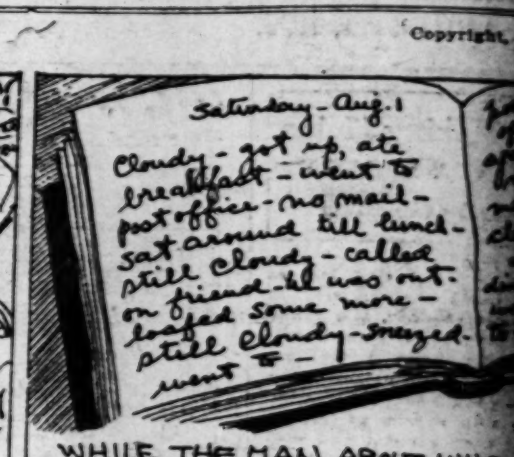 Copyright,
Saturday - Aug. 1
Cloudy - got up, ate
breakfast - went to
post office - no mail -
sat around till lunch -
still cloudy - called
on friend - he was out -
loafed some more -
still cloudy - sneezed -
went to -
WHILE THE MAN ABOUT